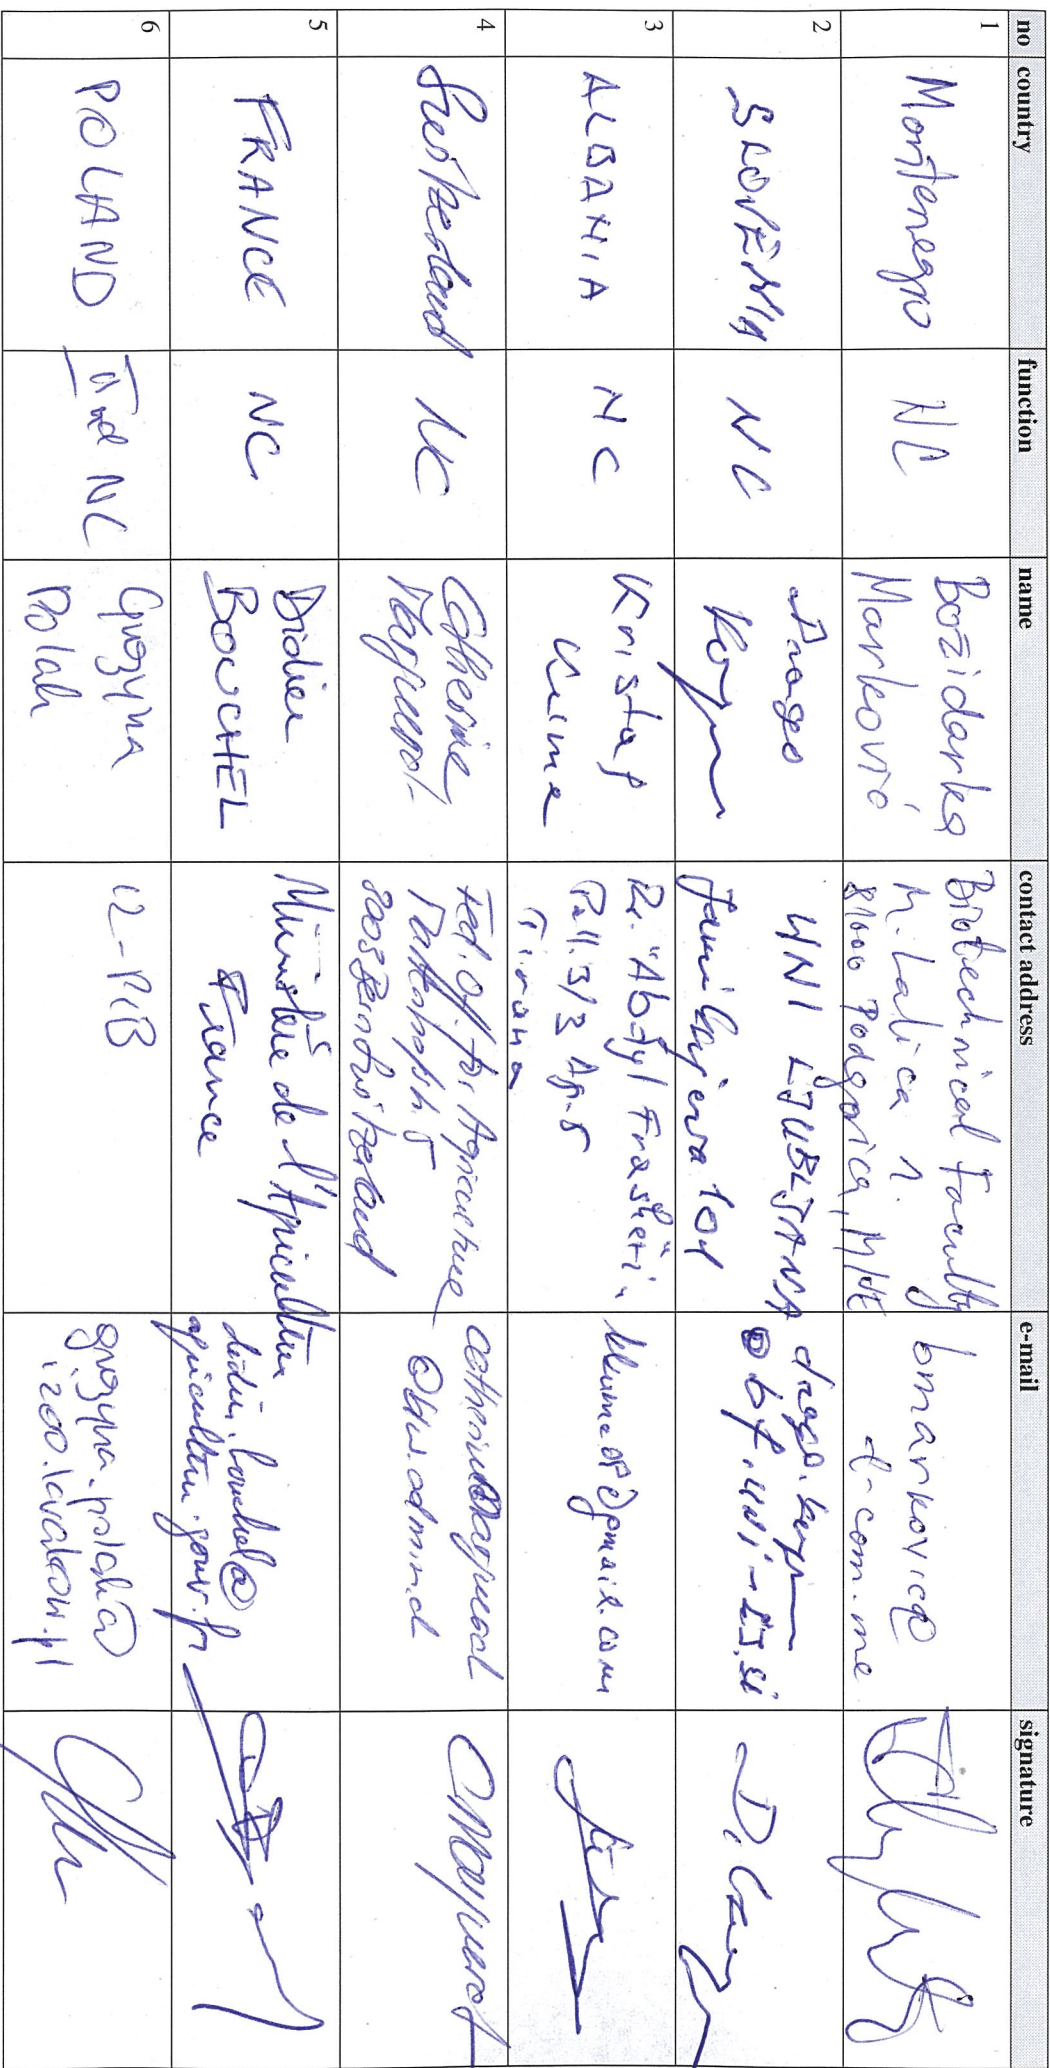 no country function name contact address e-mail signature
1 Montenegro NC Božidarka Marković Biotechnical Faculty M. Lalića 1. 81000 Podgorica, M/NE bmarkovic@ t-com.me
2 SLOVENIA NC Drago UNI LJUBLJANA Jamnikarjeva 101 drago. @bf.uni-lj.si
3 ALBANIA NC Kristaq Kume Rr. "Abdyl Frasheri" Pall. 3/3 Ap. 5 Tirana kumeor@gmail.com
4 Switzerland NC Catherine Marguerat Fed. Off. for Agriculture 5 3003 Bern Switzerland C Marguerat
5 FRANCE NC Didier BOUCHEL Ministère de l'Agriculture France didier.bouchel@ agriculture.gouv.fr
6 POLAND and NC Grażyna Polak IZ-PIB grazyna.polak@ izoo.krakow.pl